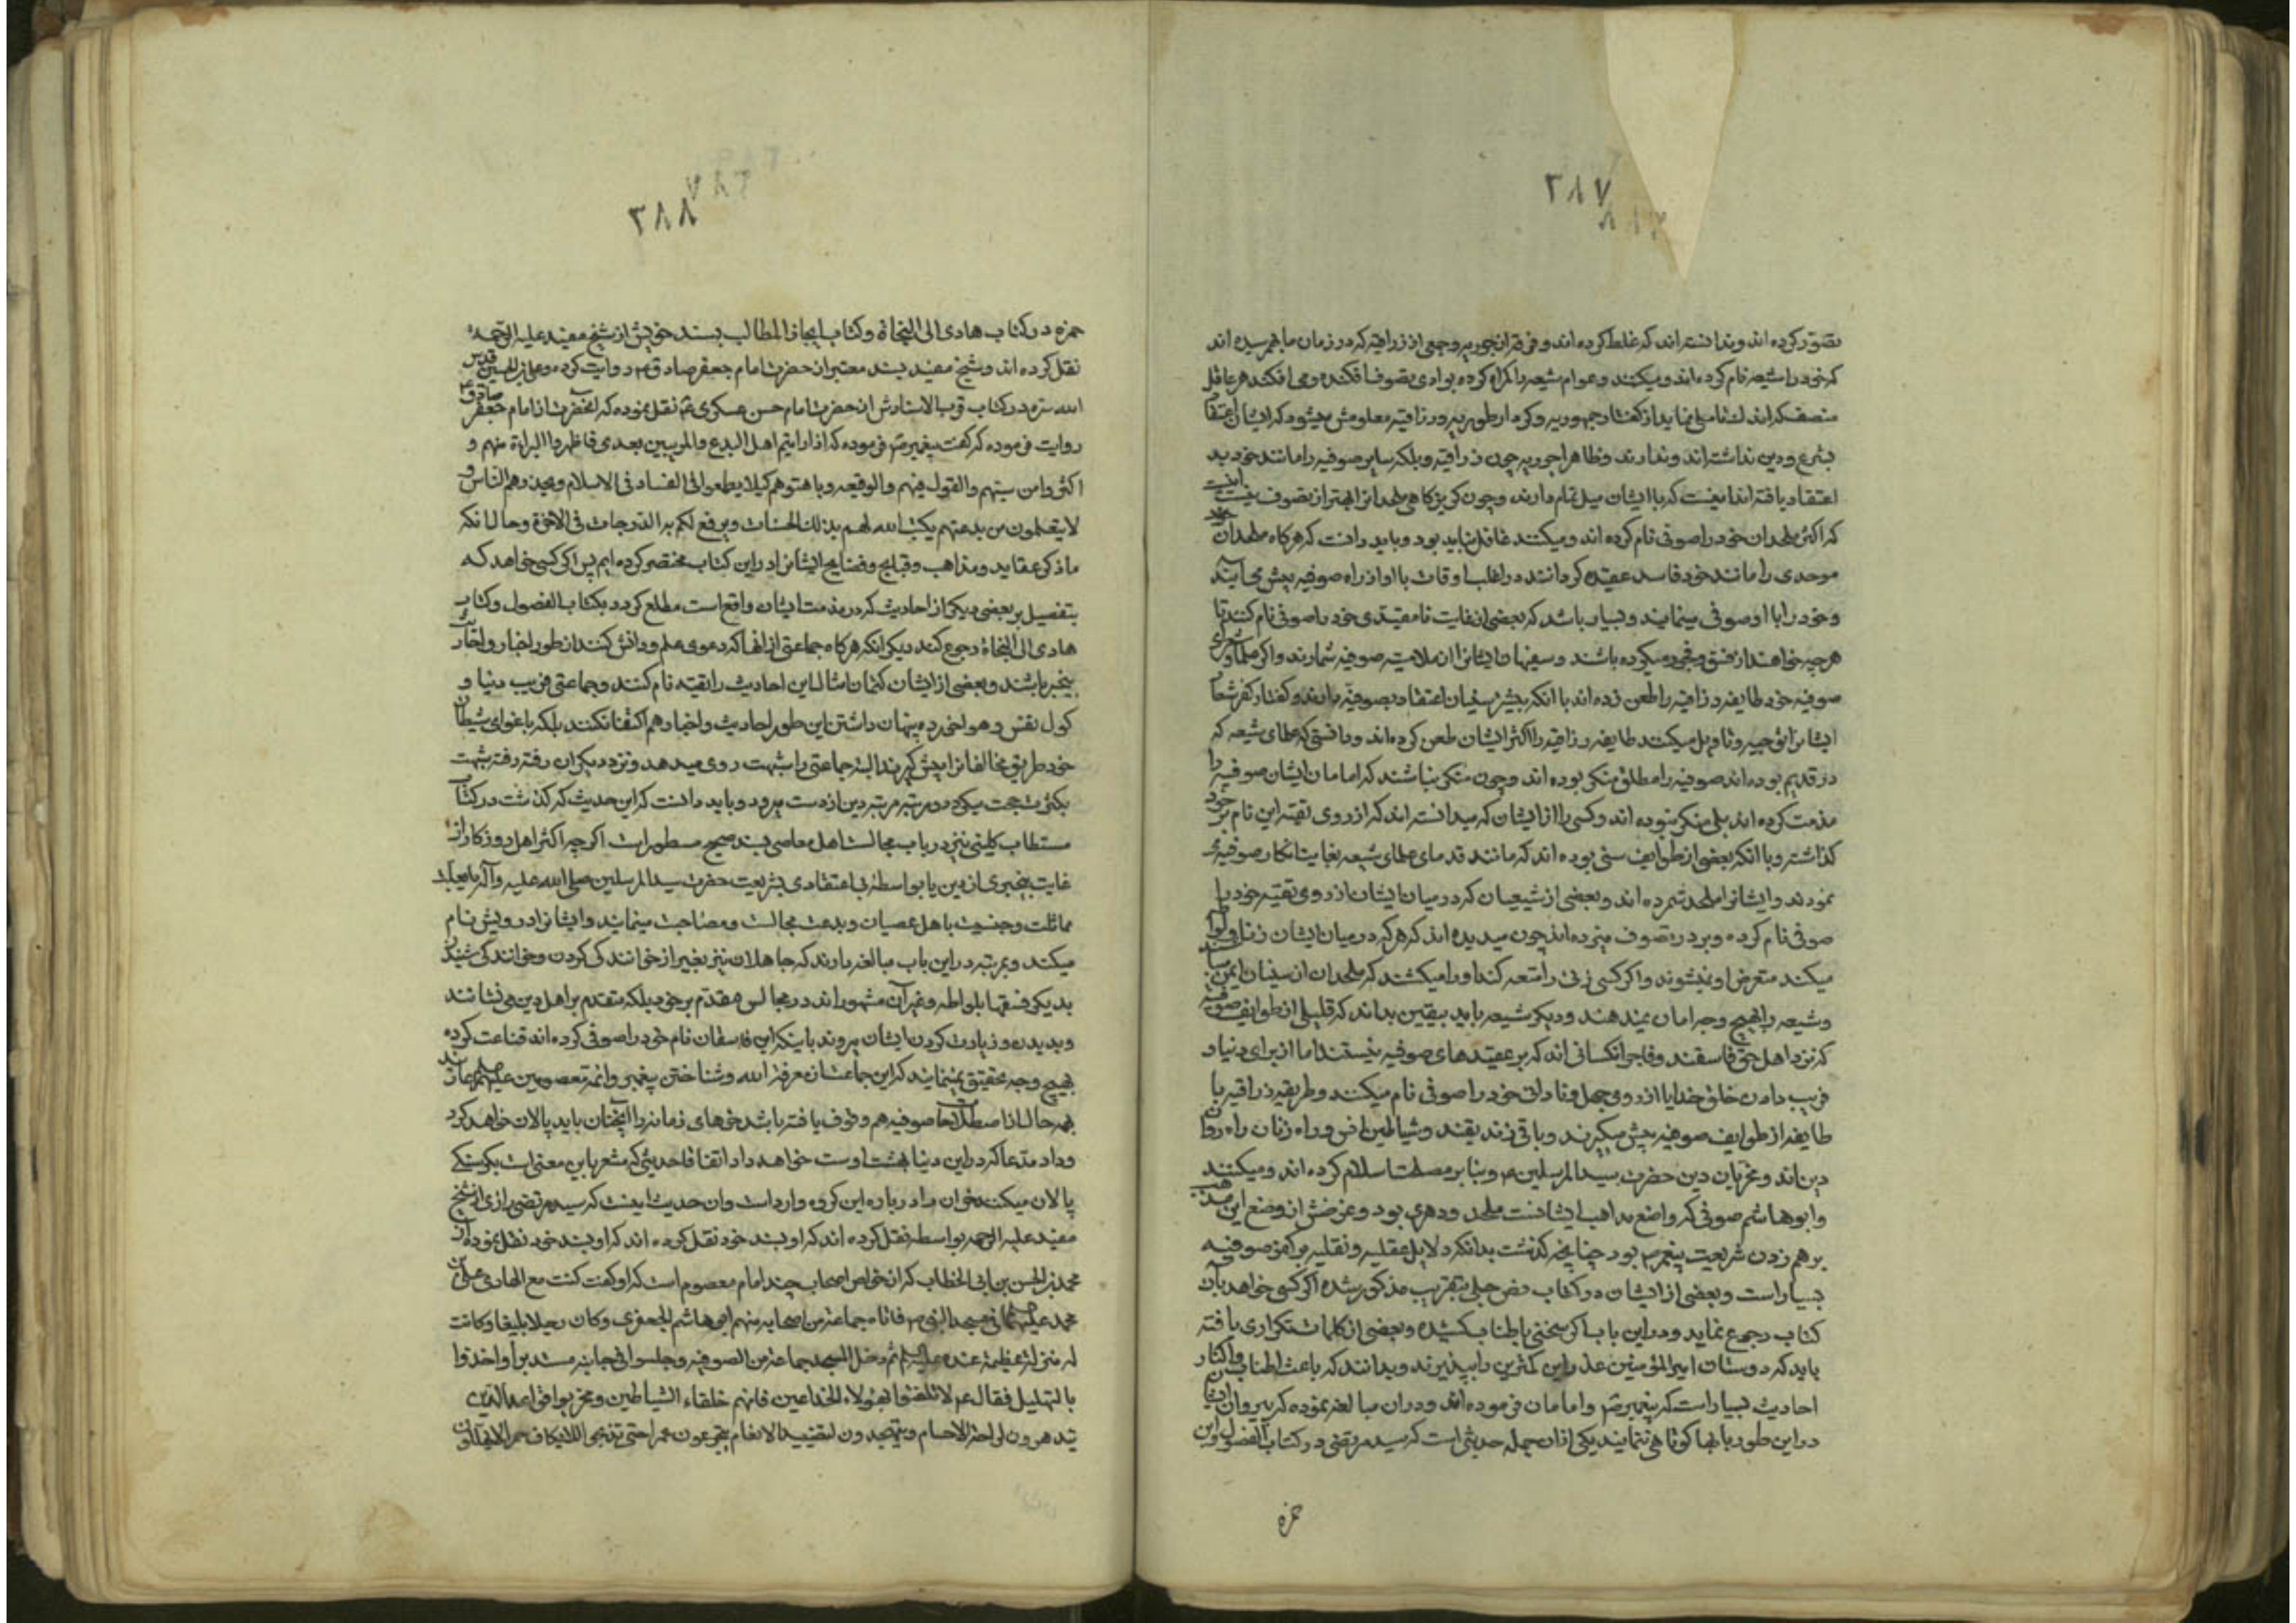 ۳۸۷
تصور کرده اند و ندانسته اند که غلط کرده اند و فرقه از جوریه و جمعی از زراقیه که در زمان ما بهم رسیده اند
که خود را شیعه نام کرده اند و میکنند و عوام شیعه را کمراه کرده بوادی تصوف افکنده و می افکنند هر عاقل
منصف که اندک تاملی نماید از کفتار جمهوریه و کردار طوریه و زراقیه معلومش میشود که ایشان اعتقاد
بشرع و دین نداشته اند و ندارند و ظاهرا جوریه چون زراقیه و بلکه سایر صوفیه را مانند خود بد
اعتقاد یافته اند اینست که با ایشان میل تمام دارند و چون کریزکاهی ملحدانرا بهتر از تصوف نیست اینست
که اکثر ملحدان خود را صوفی نام کرده اند و میکنند غافل نباید بود و باید دانست که هرکاه ملحدان
موحدی را مانند خود فاسد عقیده کردانند در اغلب اوقات با او از راه صوفیه پیش می آیند
و خود را با او صوفی مینمایند و بسیار باشد که بعضی از غایت نامقیدی خود را صوفی نام کنند تا
هرچه خواهند از فسق و فجور میکرده باشند و سفیهان ایشانرا از ملامتیه صوفیه شمارند و اکر علما و شعرای
صوفیه خود طایفه زراقیه را طعن زده اند با آنکه بیشتر سنیان اعتقاد بصوفیه دارند و کفتار کفر شعار
ایشانرا توجیه و تاویل میکنند طایفه زراقیه را اکثر ایشان طعن کرده اند و دانستی که علمای شیعه که
در قدیم بوده اند صوفیه را مطلق منکر بوده اند و چون منکر نباشند که امامان ایشان صوفیه را
مذمت کرده اند بلی منکر نبوده اند و کسی را از ایشان که میدانسته اند که از روی تقیه این نام بر خود
کذاشته و با آنکه بعضی از طوایف سنی بوده اند که مانند قدمای علمای شیعه بغایت انکار صوفیه
نمودند و ایشانرا ملحد شمرده اند و بعضی از شیعیان که در میان ایشان از روی تقیه خود را
صوفی نام کرده و بر در تصوف میزده اند چون میدیده اند که هرکه در میان ایشان زنا و لواطه
میکند متعرض او نمیشوند و اکر کسی زنی را متعه کند او را میکشند که ملحدان از سنیان ایمن میباشند
و شیعه را بهیچ وجه امان نمیدهند و دیکر شیعه باید بیقین بداند که قلیلی از طوایف صوفیه
که نزد اهل حق فاسقند و فاجر انکسانی اند که بر عقیدهای صوفیه نیستند اما از برای دنیا و
فریب دادن خلق خدا یا از روی جهل و نادانی خود را صوفی نام میکنند و طریقه زراقیه یا
طایفه از طوایف صوفیه پیش میکیرند و باقی زندیقند و شیاطین انس و راه زنان راه روان
دین اند و مخربان دین حضرت سید المرسلین ص و بنابر مصلحت اسلام کرده اند و میکنند
و ابو هاشم صوفی که واضع مذاهب ایشانست ملحد و دهری بود و غرضش از وضع این مذهب
برهم زدن شریعت پیغمبر ص بود چنانچه کذشت بدانکه دلایل عقلیه و نقلیه بر کفر صوفیه
بسیار است و بعضی از ایشان در کتاب نص جلی بتقریب مذکور شده اکر کسی خواهد بآن
کتاب رجوع نماید و در این باب اکر سخنی باطناب کشیده و بعضی از کلمات تکراری یافته
باید که دوستان امیر المؤمنین عذر این کمترین را بپذیرند و بدانند که باعث اطناب و اکثار
احادیث بسیار است که پیغمبر ص و امامان فرموده اند و در ان مبالغه نموده که پیروان ایشان
در این طور بابها کوتاهی ننمایند یکی از ان جمله حدیثی است که سید مرتضی در کتاب الفصول و ابن
حمزه
۳۸۸
حمزه در کتاب هادی الی النجاة و کتاب ایجاز المطالب بسند خویش از شیخ مفید علیه الرحمة
نقل کرده اند و شیخ مفید بسند معتبر از حضرت امام جعفر صادق ع روایت کرده و علی بن الحسین قدس
الله سره در کتاب قرب الاسناد از حضرت امام حسن عسکری ع نقل نموده که آنحضرت از امام جعفر صادق ع
روایت فرموده که کفت پیغمبر ص فرموده که اذا رایتم اهل البدع والمریبین بعدی فاظهروا البراءة منهم و
اکثروا من سبهم والقول فیهم والوقیعه و باهتوهم کیلا یطمعوا فی الفساد فی الاسلام ویحذرهم الناس و
لا یتعلمون من بدعتهم یکتب الله لهم بذلک الحسنات ویرفع لکم به الدرجات فی الاخرة و حال انکه
ما ذکر عقاید و مذاهب و قبایح و فضایح ایشانرا در این کتاب مختصر کرده ایم پس اکر کسی خواهد که
بتفصیل بر بعضی دیکر از احادیث که در مذمت ایشان واقع است مطلع کردد بکتاب الفصول و کتاب
هادی الی النجاة رجوع کند دیکر انکه هرکاه جماعتی از انها که دعوی علم و دانش کنند از طور اخبار و احادیث
بیخبر باشند و بعضی از ایشان کتمان امثال این احادیث را تقیه نام کنند و جماعتی فریب دنیا و
کول نفس و هوا خورده بپنهان داشتن این طور احادیث و اخبار هم اکتفا نکنند بلکه باغوای شیطان
خود طریق مخالفانرا پیش کیرند البته جماعتی را شبهت روی میدهد و نزد دیکران رفته رفته شبهت
بکثرت حجت میکردد مرتبه مرتبه دین از دست میرود و باید دانست که این حدیث که کذشت در کتاب
مستطاب کلینی نیز در باب مجالست اهل معاصی بسند صحیح مسطور است اکرچه اکثر اهل روزکار از
غایت بیخبری از دین یا بواسطه بی اعتقادی بشریعت حضرت سید المرسلین صلی الله علیه وآله
مماثلت و جنسیت با اهل عصیان و بدعت مجالست و مصاحبت مینمایند و ایشانرا درویش نام
میکنند و بمرتبه در این باب مبالغه دارند که جاهلان نیز بغیر از خوانندکی کردن و خوانندکی شنیدن
بدیکر فسقها بلواطه و غیر آن مشهور اند در مجالس مقدم بر خود بلکه مقدم بر اهل دین می نشانند
و بدیدن و زیارت کردن ایشان میروند با اینکه این فاسقان نام خود را صوفی کرده اند قناعت کرده
بهیچ وجه تحقیق نمینمایند که این جماعت از معرفة الله و شناختن پیغمبر و ائمه معصومین علیهم السلم عاری اند
بهر حال از اصطلاحات صوفیه هم وقوف یافته باشد خرهای زمانه را آنچنان باید پالان خواهد کرد
و داد مدعا که در این دنیا بهشت اوست خواهد داد اتفاقا حدیثی که مشعر باین معنی است که
پالان میکند خران را در باره این کروه وارد است وان حدیث اینست که سید مرتضی رازی از شیخ
مفید علیه الرحمه بواسطه نقل کرده اند که او بسند خود نقل کرده اند که او بسند خود نقل نموده از
محمد بن الحسین بن ابی الخطاب که از خواص اصحاب چند امام معصوم است که او کفت کنت مع الهادی علی بن
محمد علیهما السلم فی مسجد النبی ص فاتاه جماعة من اصحابه منهم ابو هاشم الجعفری وکان رجلا بلیغا وکانت
له منزلة عظیمة عنده علیه السلم ثم دخل المسجد جماعة من الصوفیه وجلسوا فی جانبه مستدیرا واخذوا
بالتهلیل فقال ع لا تلتفتوا بهؤلاء الخداعین فانهم خلفاء الشیاطین ومخربوا قواعد الدین
یتزهدون لراحة الاجسام ویتهجدون لتقیید الانعام یتجوعون عمرا حتی یذبحوا للایکاف حمرا لا یهللون